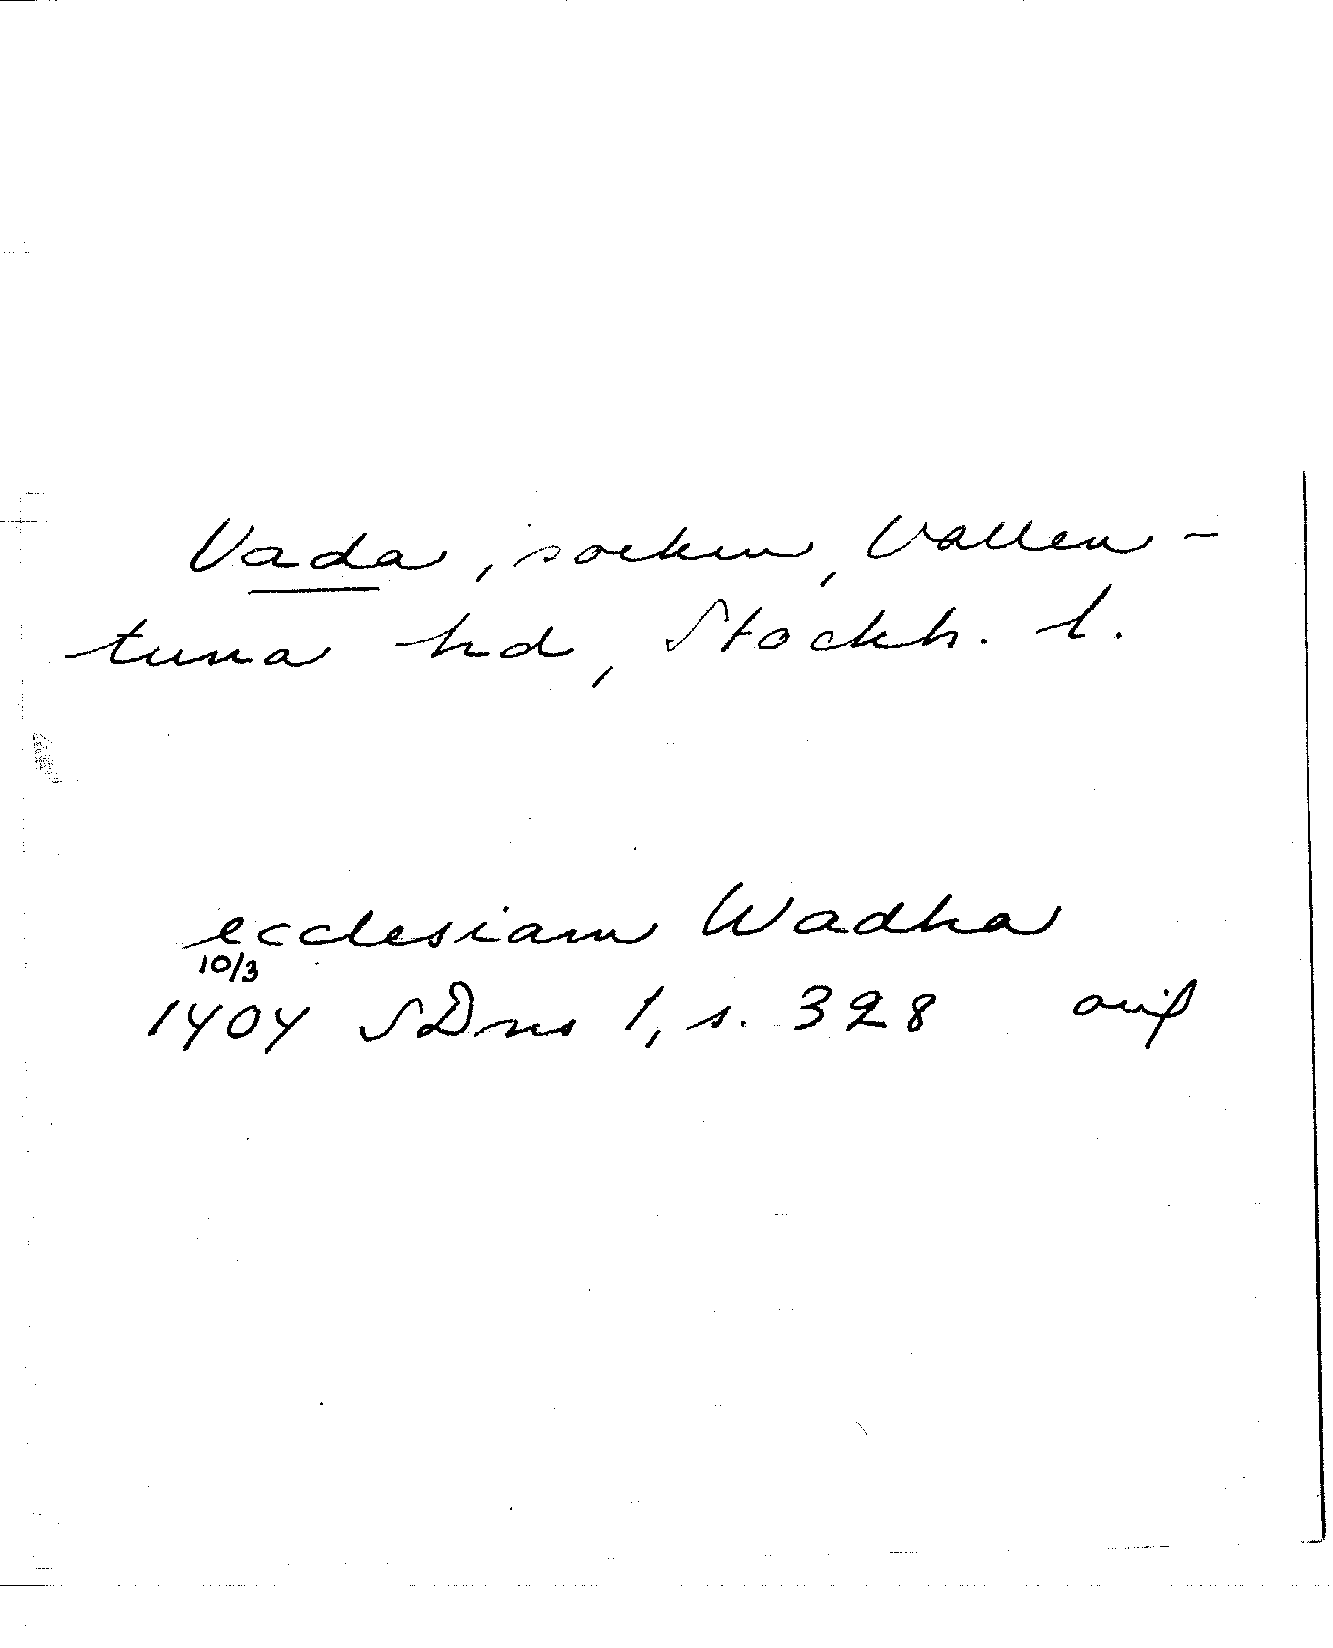 Vada, socken, Vallen-
tuna hd, Stockh. l.
ecclesiam Wadha
10/3
1404 SDns 1, s. 328